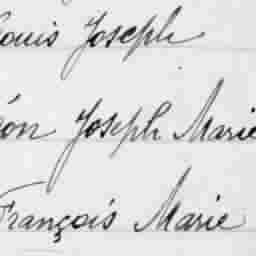 Louis Joseph
Léon Joseph Marie
François Marie